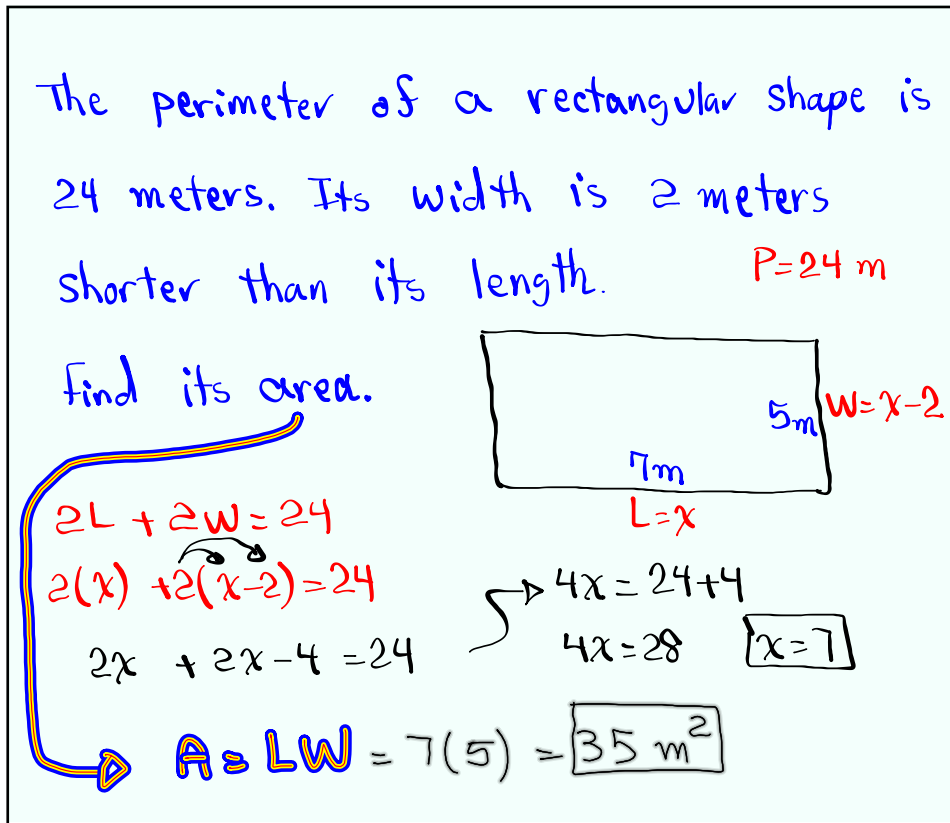 The perimeter of a rectangular shape is
24 meters. Its width is 2 meters
shorter than its length.
P=24 m
Find its area.
5m W=x-2
7m
L=x
2L + 2W = 24
2(x) +2(x-2)=24
4x = 24+4
2x + 2x-4 =24
4x=28 x=7
A = LW = 7(5) = 35 m²